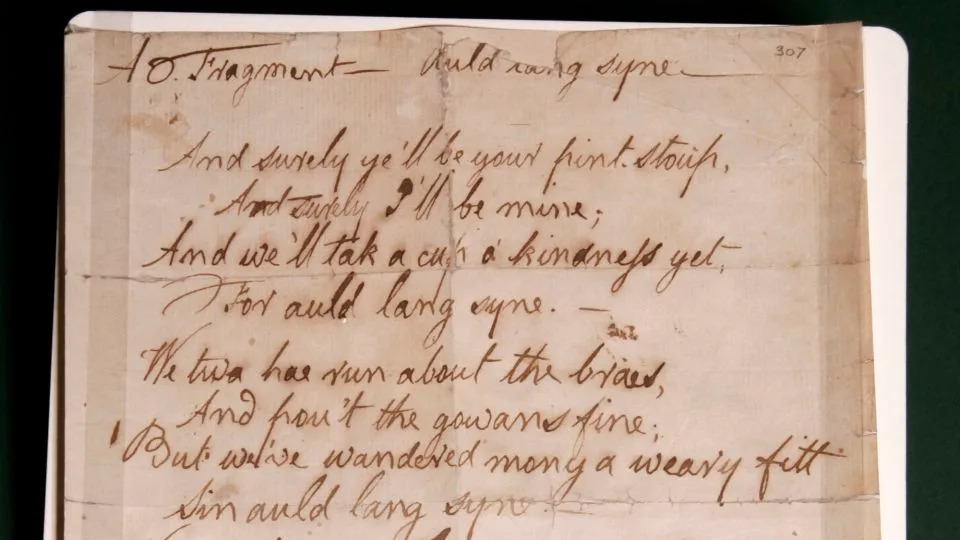 307
A O. Fragment — Auld lang syne —
And surely ye'll be your pint-stoup,
And surely I'll be mine;
And we'll tak a cup o' kindness yet,
For auld lang syne. —
We twa hae run about the braes,
And pou't the gowans fine;
But we've wandered mony a weary fitt
Sin auld lang syne.